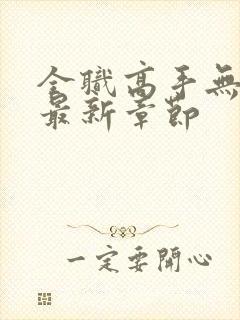 全職高手無
最新章節
一定要開心